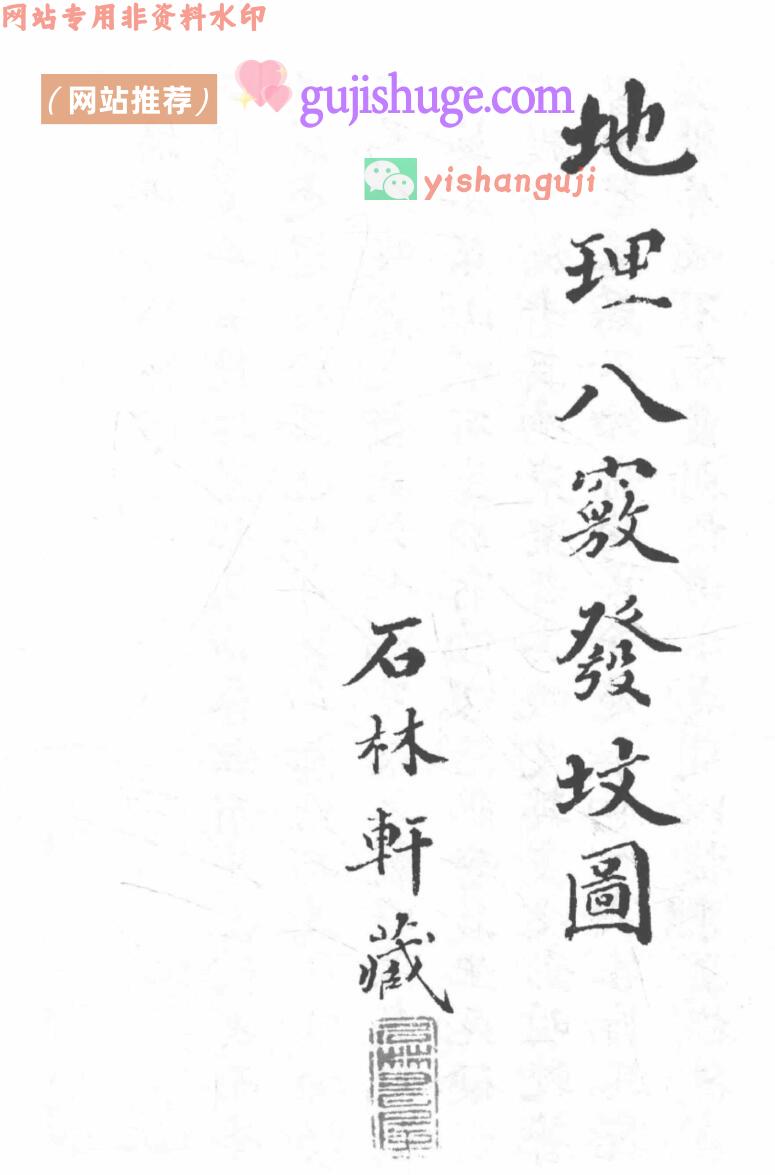 网站专用非资料水印
（网站推荐）
gujishuge.com
yishanguji
地理八竅發坟圖
石林軒藏